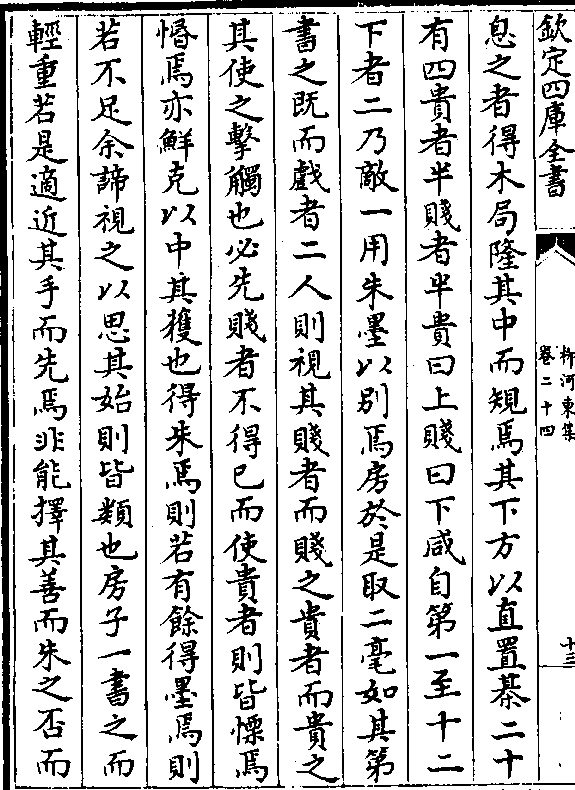 欽定四庫全書
柳河東集
卷二十四
十三
息之者得木局隆其中而規焉其下方以直置棊二十
有四貴者半賤者半貴曰上賤曰下咸自第一至十二
下者二乃敵一用朱墨以别焉房於是取二毫如其第
書之既而戲者二人則視其賤者而賤之貴者而貴之
其使之擊觸也必先賤者不得已而使貴者則皆慄焉
惛焉亦鮮克以中其獲也得朱焉則若有餘得墨焉則
若不足余諦視之以思其始則皆類也房子一書之而
輕重若是適近其手而先焉非能擇其善而朱之否而